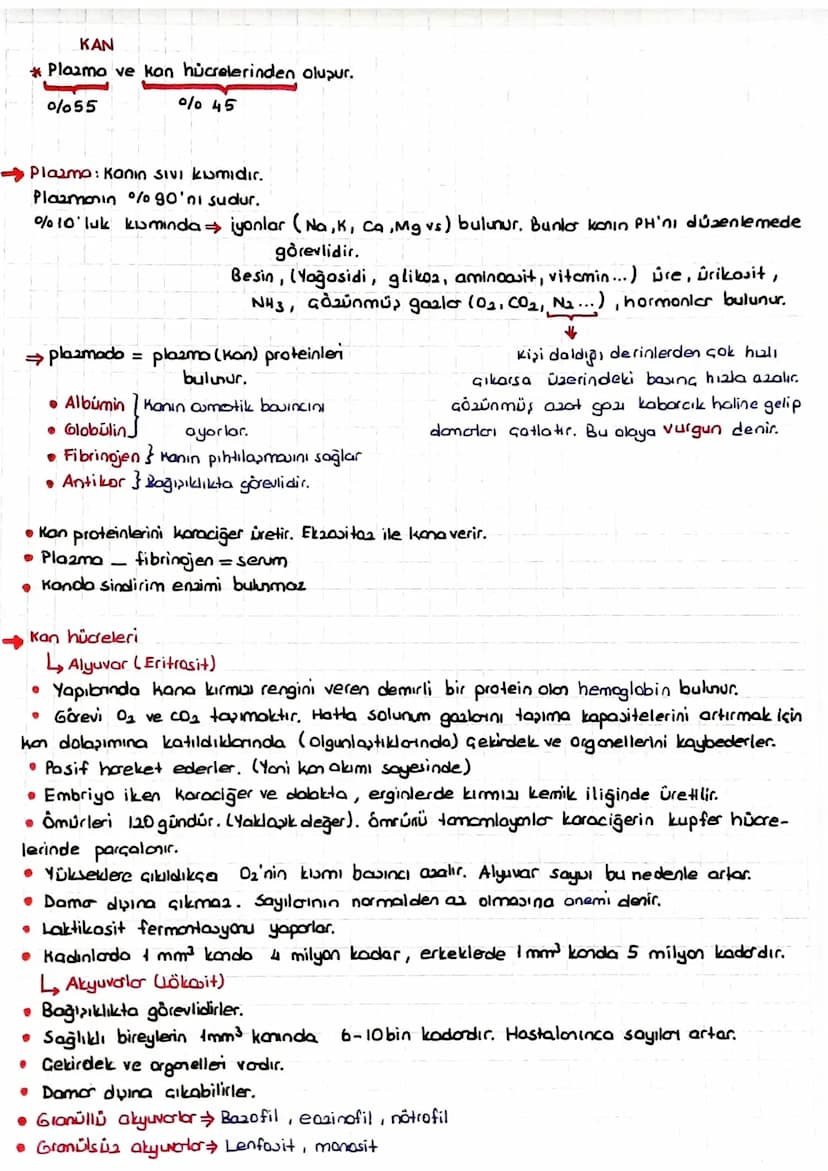 KAN
* Plazma ve kan hücrelerinden oluşur.
%55 %45
→ Plazma: Kanın sıvı kısmıdır.
Plazmanın %90'nı sudur.
%10'luk kısmında ⇒ iyonlar (Na, K, Ca, Mg vs) bulunur. Bunlar kanın PH'nı düzenlemede
görevlidir.
Besin, (Yağasidi, glikoz, aminoasit, vitamin...) üre, ürikasit,
NH₃, Çözünmüş gazlar (O₂, CO₂, N₂...), hormonlar bulunur.
⇒ plazmada = plazma (Kan) proteinleri
bulunur.
• Albümin } Kanın osmotik basıncını
• Globülin } ayarlar.
• Fibrinojen } Kanın pıhtılaşmasını sağlar
• Antikor } Bağışıklıkta görevlidir.
Kişi daldığı derinlerden çok hızlı
çıkarsa üzerindeki basınç hızla azalır.
Çözünmüş azot gazı kabarcık haline gelip
damarları çatlatır. Bu olaya vurgun denir.
• Kan proteinlerini karaciğer üretir. Ekzositoz ile kana verir.
• Plazma – fibrinojen = serum
• Kanda sindirim enzimi bulunmaz
→ Kan hücreleri
↳ Alyuvar (Eritrosit)
• Yapılarında kana kırmızı rengini veren demirli bir protein olan hemoglobin bulunur.
• Görevi O₂ ve CO₂ taşımaktır. Hatta solunum gazlarını taşıma kapasitelerini artırmak için
kan dolaşımına katıldıklarında (olgunlaştıklarında) Çekirdek ve organellerini kaybederler.
• Pasif hareket ederler. (Yani kan akımı sayesinde)
• Embriyo iken karaciğer ve dalakta, erginlerde kırmızı kemik iliğinde üretilir.
• Ömürleri 120 gündür. (Yaklaşık değer). Ömrünü tamamlayanlar karaciğerin kupfer hücre-
lerinde parçalanır.
• Yükseklere çıkıldıkça O₂'nin kısmi basıncı azalır. Alyuvar sayısı bu nedenle artar.
• Damar dışına çıkmaz. Sayılarının normalden az olmasına anemi denir.
• Laktikasit fermantasyonu yaparlar.
• Kadınlarda 1 mm³ kanda 4 milyon kadar, erkeklerde 1 mm³ kanda 5 milyon kadardır.
↳ Akyuvarlar (Lökosit)
• Bağışıklıkta görevlidirler.
• Sağlıklı bireylerin 1mm³ kanında 6-10 bin kadardır. Hastalanınca sayıları artar.
• Çekirdek ve organelleri vardır.
• Damar dışına çıkabilirler.
• Granüllü akyuvarlar ⇒ Bazofil, eozinofil, nötrofil
• Granülsüz akyuvarlar ⇒ Lenfosit, monosit